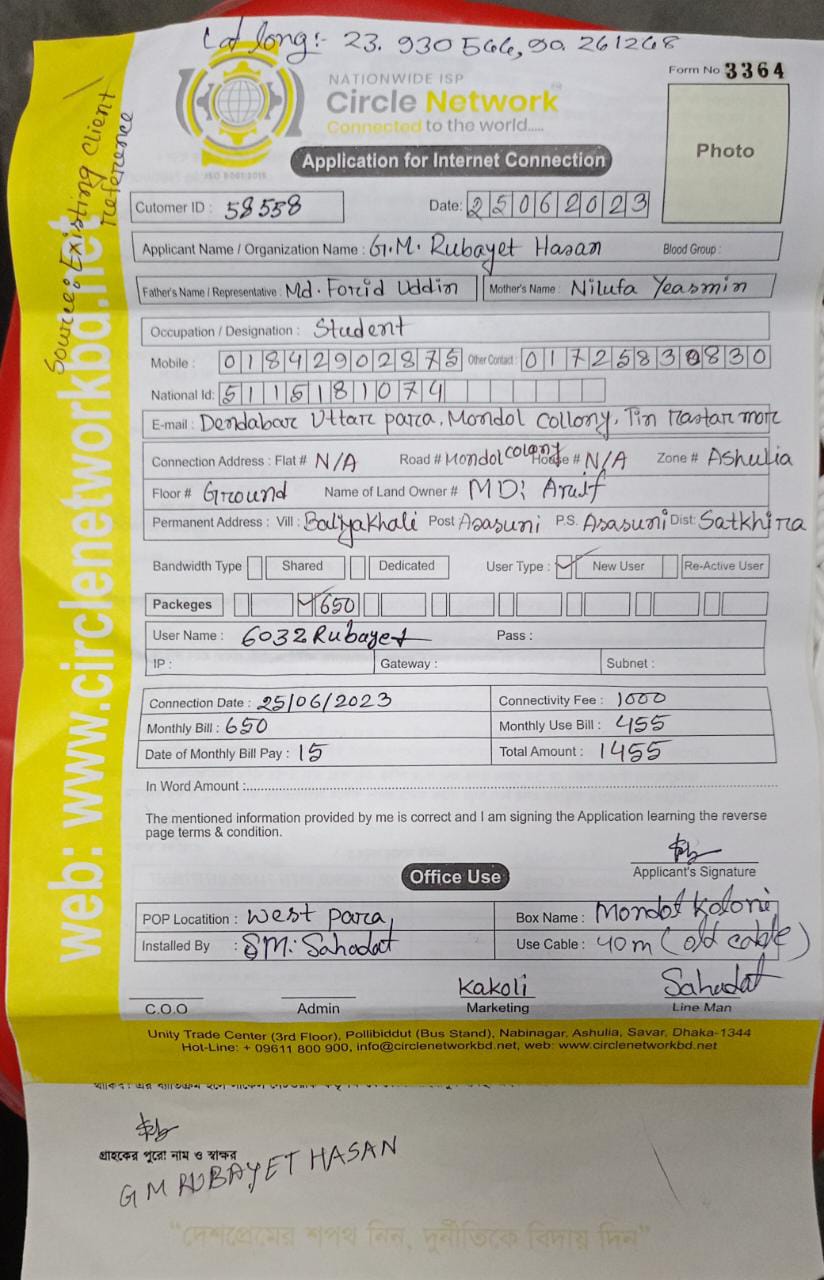 Lat long:- 23. 930566, 90. 261268
Form No 3364
NATIONWIDE ISP
Circle Network
Connected to the world.....
ISO 9001:2015
Photo
Application for Internet Connection
Source: Existing Client
Reference
web: www.circlenetworkbd.net
Cutomer ID : 58558 Date: 25062023
Applicant Name / Organization Name : G.M. Rubayet Hasan Blood Group :
Father's Name / Representative : Md. Forid Uddin Mother's Name : Nilufa Yeasmin
Occupation / Designation : Student
Mobile : 01842902875 Other Contact : 01725830830
National Id: 5115181074
E-mail : Dendabar Uttar para, Mondol Collony, Tin rastar mor
Connection Address : Flat # N/A Road # Mondol colony House # N/A Zone # Ashulia
Floor # Ground Name of Land Owner # MD: Araif
Permanent Address : Vill : Baliyakhali Post Asasuni P.S. Asasuni Dist: Satkhira
Bandwidth Type Shared Dedicated User Type : ✓ New User Re-Active User
Packeges ✓ 650
User Name : 6032Rubayet Pass :
IP : Gateway : Subnet :
Connection Date : 25/06/2023 Connectivity Fee : 1000
Monthly Bill : 650 Monthly Use Bill : 455
Date of Monthly Bill Pay : 15 Total Amount : 1455
In Word Amount :
The mentioned information provided by me is correct and I am signing the Application learning the reverse
page terms & condition.
Applicant's Signature
Office Use
POP Locatition : West para, Box Name : Mondol Koloni
Installed By : SM: Sahadat Use Cable : 40m (old cable)
Kakoli Sahadat
C.O.O Admin Marketing Line Man
Unity Trade Center (3rd Floor), Pollibiddut (Bus Stand), Nabinagar, Ashulia, Savar, Dhaka-1344
Hot-Line: + 09611 800 900, info@circlenetworkbd.net, web: www.circlenetworkbd.net
গ্রাহকের পুরো নাম ও স্বাক্ষর
G M RUBAYET HASAN
“দেশপ্রেমের শপথ নিন, দুর্নীতিকে বিদায় দিন”